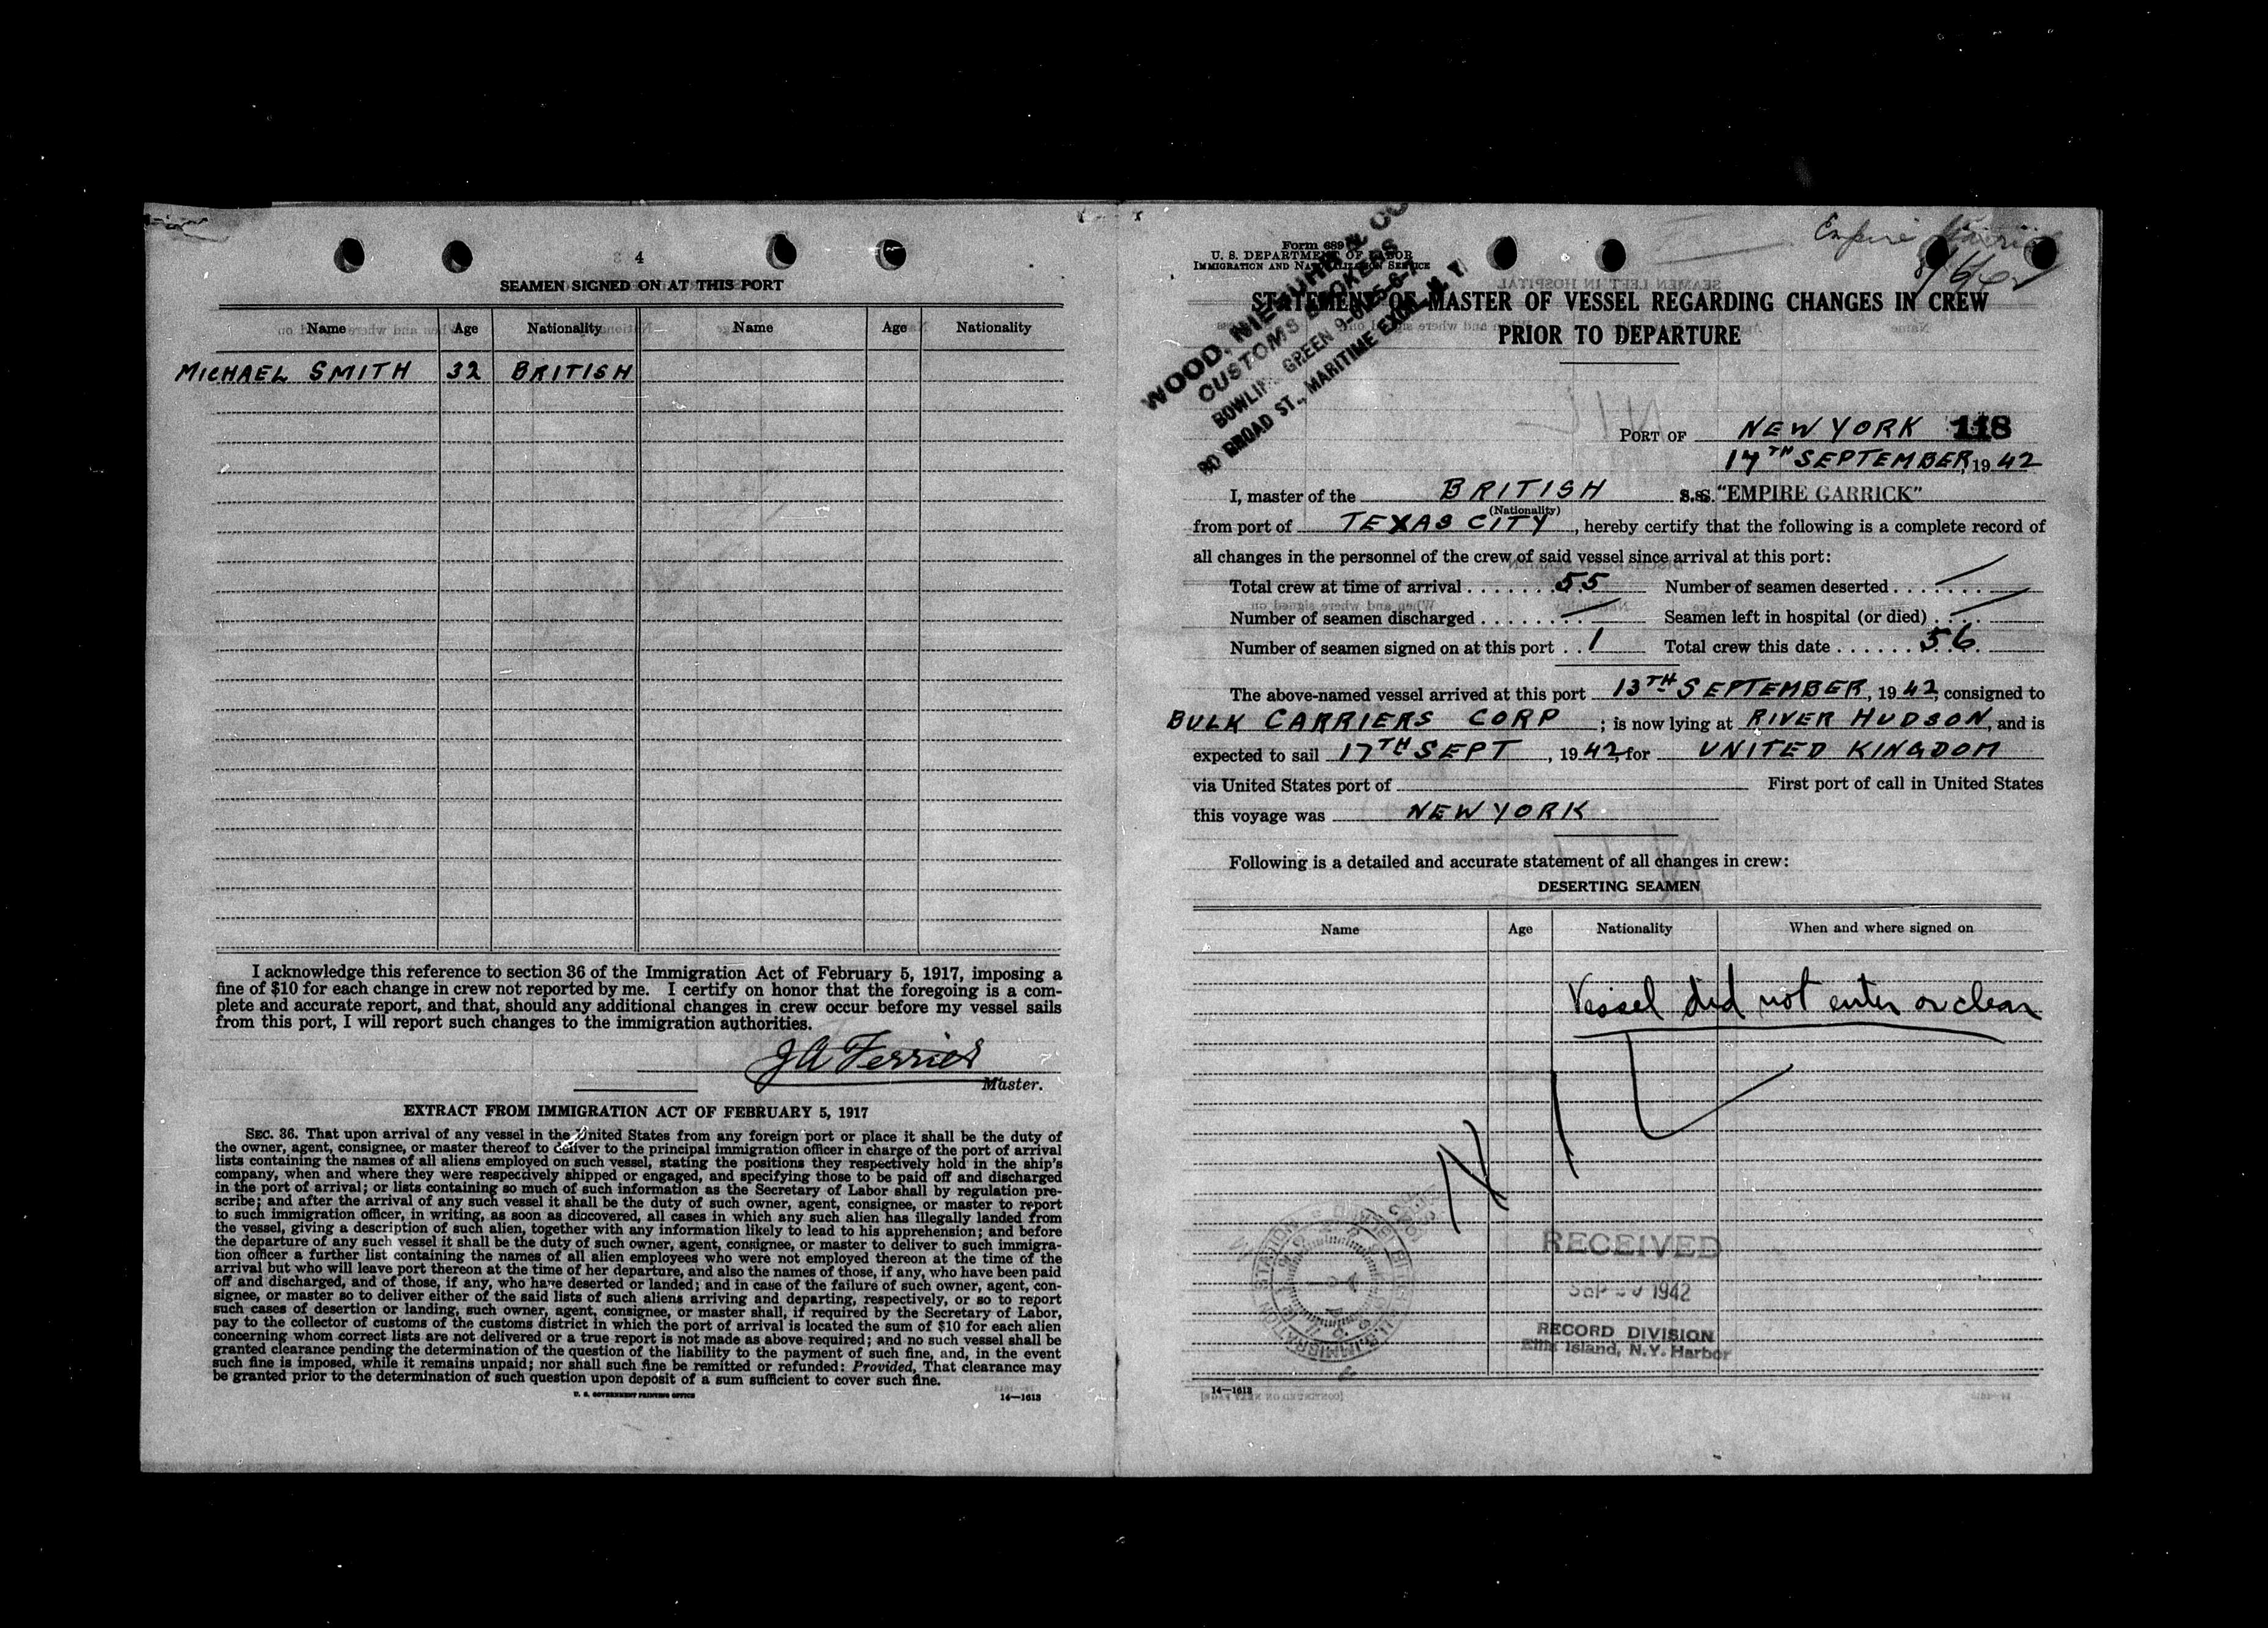 4
SEAMEN SIGNED ON AT THIS PORT
Name Age Nationality Name Age Nationality
MICHAEL SMITH 32 BRITISH
I acknowledge this reference to section 36 of the Immigration Act of February 5, 1917, imposing a
fine of $10 for each change in crew not reported by me. I certify on honor that the foregoing is a com-
plete and accurate report, and that, should any additional changes in crew occur before my vessel sails
from this port, I will report such changes to the immigration authorities.
J A Ferrier
Master.
EXTRACT FROM IMMIGRATION ACT OF FEBRUARY 5, 1917
SEC. 36. That upon arrival of any vessel in the United States from any foreign port or place it shall be the duty of
the owner, agent, consignee, or master thereof to deliver to the principal immigration officer in charge of the port of arrival
lists containing the names of all aliens employed on such vessel, stating the positions they respectively hold in the ship's
company, when and where they were respectively shipped or engaged, and specifying those to be paid off and discharged
in the port of arrival; or lists containing so much of such information as the Secretary of Labor shall by regulation pre-
scribe; and after the arrival of any such vessel it shall be the duty of such owner, agent, consignee, or master to report
to such immigration officer, in writing, as soon as discovered, all cases in which any such alien has illegally landed from
the vessel, giving a description of such alien, together with any information likely to lead to his apprehension; and before
the departure of any such vessel it shall be the duty of such owner, agent, consignee, or master to deliver to such immigra-
tion officer a further list containing the names of all alien employees who were not employed thereon at the time of the
arrival but who will leave port thereon at the time of her departure, and also the names of those, if any, who have been paid
off and discharged, and of those, if any, who have deserted or landed; and in case of the failure of such owner, agent, con-
signee, or master so to deliver either of the said lists of such aliens arriving and departing, respectively, or so to report
such cases of desertion or landing, such owner, agent, consignee, or master shall, if required by the Secretary of Labor,
pay to the collector of customs of the customs district in which the port of arrival is located the sum of $10 for each alien
concerning whom correct lists are not delivered or a true report is not made as above required; and no such vessel shall be
granted clearance pending the determination of the question of the liability to the payment of such fine, and, in the event
such fine is imposed, while it remains unpaid; nor shall such fine be remitted or refunded: Provided, That clearance may
be granted prior to the determination of such question upon deposit of a sum sufficient to cover such fine.
U. S. GOVERNMENT PRINTING OFFICE
14—1613
Empire
Form 689
U. S. DEPARTMENT OF LABOR
IMMIGRATION AND NATURALIZATION SERVICE
WOOD, NIEBUHR & CO
CUSTOMS BROKERS
BOWLING GREEN
80 BROAD ST., MARITIME N Y
STATEMENT OF MASTER OF VESSEL REGARDING CHANGES IN CREW
PRIOR TO DEPARTURE
PORT OF NEW YORK 118
17TH SEPTEMBER, 1942
I, master of the BRITISH S.S. "EMPIRE GARRICK"
(Nationality)
from port of TEXAS CITY, hereby certify that the following is a complete record of
all changes in the personnel of the crew of said vessel since arrival at this port:
Total crew at time of arrival 55 Number of seamen deserted
Number of seamen discharged Seamen left in hospital (or died)
Number of seamen signed on at this port 1 Total crew this date 56
The above-named vessel arrived at this port 13TH SEPTEMBER, 1942, consigned to
BULK CARRIERS CORP; is now lying at RIVER HUDSON, and is
expected to sail 17TH SEPT, 1942, for UNITED KINGDOM
via United States port of First port of call in United States
this voyage was NEW YORK
Following is a detailed and accurate statement of all changes in crew:
DESERTING SEAMEN
Name Age Nationality When and where signed on
Vessel did not enter or clear
NIL
RECEIVED
SEP 1942
RECORD DIVISION
Ellis Island, N.Y. Harbor
14—1613